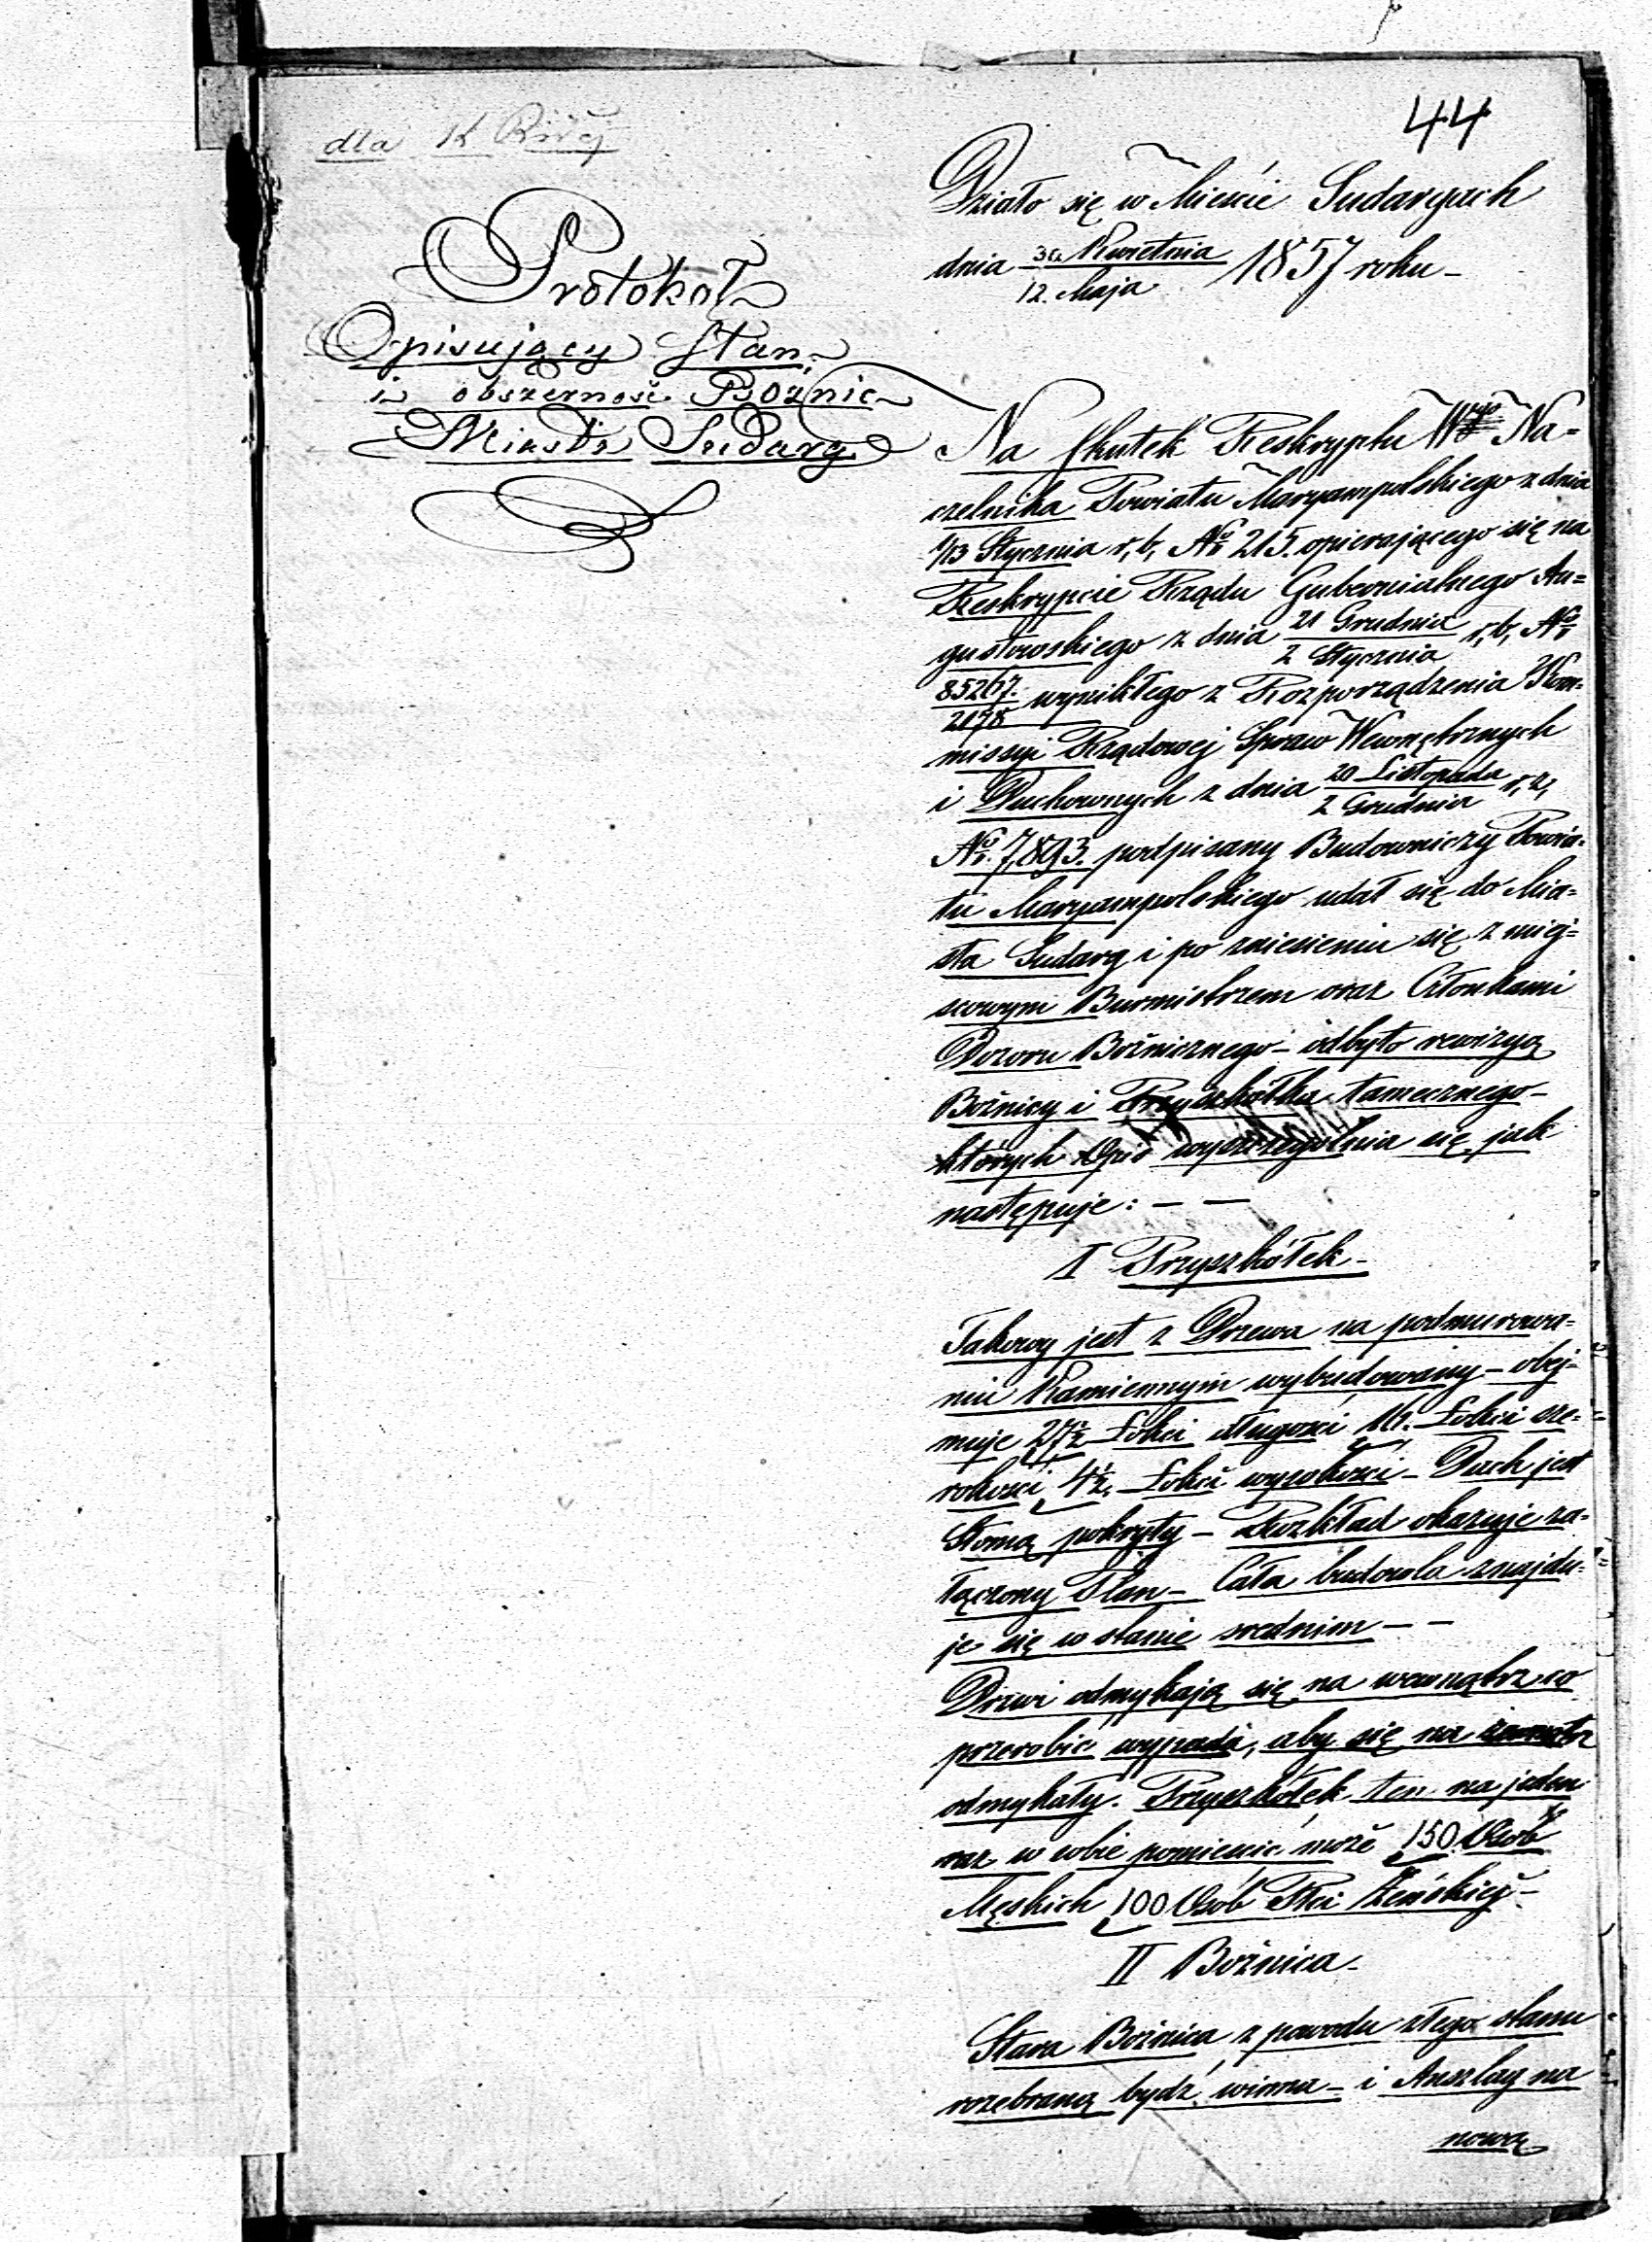 44
dla K
Protokół
Opisujący Stan
i obszerność Bożnic
Miasta Sudarg
Działo się w Mieście Sudargach
dnia 30 Kwietnia / 12 Maja 1857 roku –
Na skutek Reskryptu Wgo Na=
czelnika Powiatu Maryampolskiego z dnia
1/13 Stycznia r, b, No 215. opierającego się na
Reskrypcie Rządu Gubernialnego Au=
gustowskiego z dnia 21 Grudnia / 2 Stycznia r, b, No
85267. / 2198 wynikłego z Rozporządzenia Kom=
missyi Rządowej Spraw Wewnętrznych
i Duchownych z dnia 20 Listopada / 2 Grudnia r, z,
No. 7,893. podpisany Budowniczy Powia=
tu Maryampolskiego udał się do Mia=
sta Sudarg i po zniesieniu się z miej=
scowym Burmistrzem oraz Członkami
Dozoru Bóżnicznego – odbyto rewizyą
Bóżnicy i Przyszkółka tamecznego –
których Opis wyszczególnia się jak
następuje: – –
I Przyszkółek –
Takowy jest z Drzewa na podmurowa=
niu Kamiennym wybudowany – obej=
muje 27½ Łokci długości 16. Łokci sze=
rokości 4½. Łokci wysokości – Dach jest
Słomą pokryty – Rozkład okazuje za=
łączony Plan – Cała budowla znajdu=
je się w stanie srednim – –
Drzwi odmykają się na wewnątrz co
przerobić wypada, aby się na zewnątrz
odmykały. Przyszkółek ten na jeden
raz w sobie pomieścić może 150 Osób
Męskich 100 Osób Płci Żeńskiej –
II Bóżnica –
Stara Bóżnica z powodu złego stanu
rozebraną bydź winna – i Anszlag na
nową